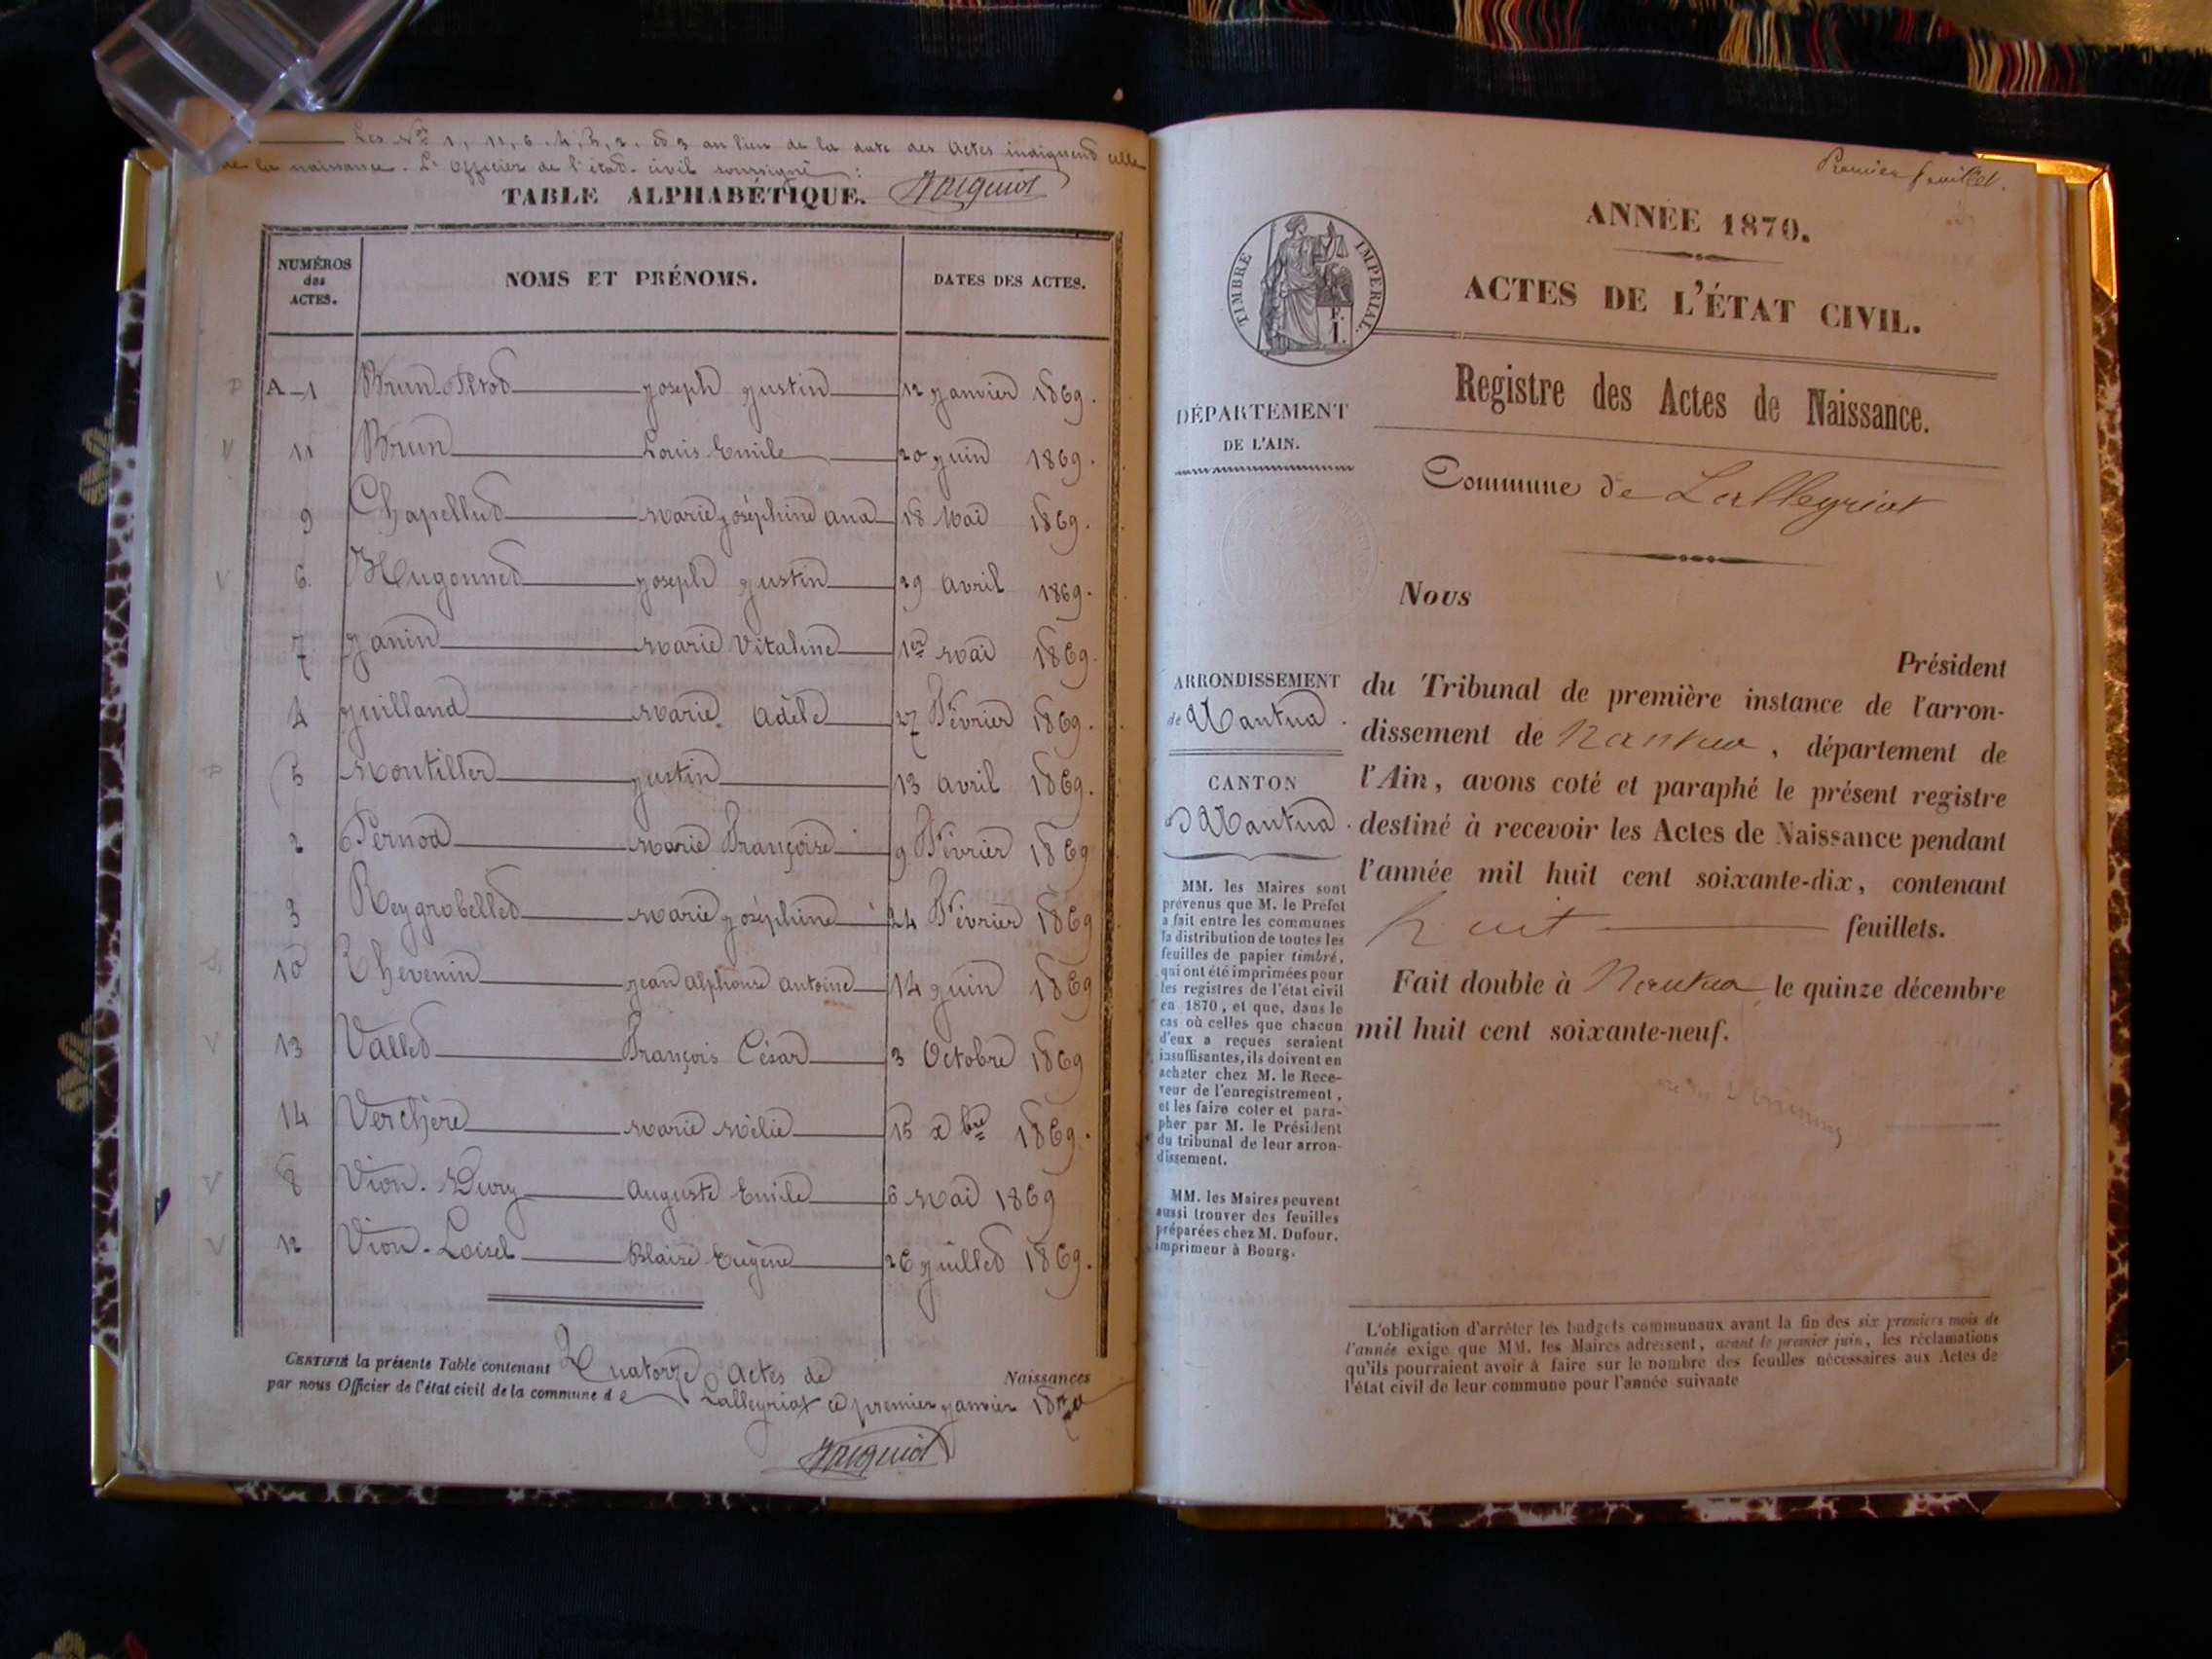 Les Nos 1, 11, 6, 4, 5, 2, et 3 au lieu de la date des Actes indiquent celle
de la naissance. L'Officier de l'état-civil soussigné :
TABLE ALPHABÉTIQUE.
NUMÉROS des ACTES. NOMS ET PRÉNOMS. DATES DES ACTES.
A-1 Brun- Joseph Justin 12 Janvier 1869.
11 Brun Louis Emile 20 Juin 1869.
9 Chapellut Marie Joséphine Ana 18 Mai 1869.
6. Hugonnet Joseph Justin 29 Avril 1869.
7 Janin Marie Vitaline 1er Mai 1869.
4 Juilland Marie Adèle 27 Février 1869.
5 Montillet Justin 13 Avril 1869.
2 Pernod Marie Françoise 9 Février 1869
3 Reygrobellet Marie Joséphine 24 Février 1869
10 Thevenin Jean Alphonse Antoine 14 Juin 1869
13 Vallet François César 3 Octobre 1869
14 Verchère Marie Mélie 15 Xbre 1869.
8 Vion-Dury Auguste Emile 6 Mai 1869
12 Vion-Loisel Blaise Eugène 26 Juillet 1869.
CERTIFIÉ la présente Table contenant Quatorze Actes de Naissances
par nous Officier de l'état civil de la commune de Lalleyriat ce premier janvier 1870
Premier feuillet.
ANNÉE 1870.
TIMBRE IMPÉRIAL.
ACTES DE L'ÉTAT CIVIL.
Registre des Actes de Naissance.
DÉPARTEMENT
DE L'AIN.
Commune de Lalleyriat
Nous
Président
ARRONDISSEMENT
de Nantua.
CANTON
d Nantua.
du Tribunal de première instance de l'arron-
dissement de Nantua, département de
l'Ain, avons coté et paraphé le présent registre
destiné à recevoir les Actes de Naissance pendant
l'année mil huit cent soixante-dix, contenant
huit feuillets.
Fait double à Nantua, le quinze décembre
mil huit cent soixante-neuf.
MM. les Maires sont
prévenus que M. le Préfet
a fait entre les communes
la distribution de toutes les
feuilles de papier timbré,
qui ont été imprimées pour
les registres de l'état civil
en 1870, et que, dans le
cas où celles que chacun
d'eux a reçues seraient
insuffisantes, ils doivent en
acheter chez M. le Rece-
veur de l'enregistrement,
et les faire coter et para-
pher par M. le Président
du tribunal de leur arron-
dissement.
MM. les Maires peuvent
aussi trouver des feuilles
préparées chez M. Dufour,
imprimeur à Bourg.
L'obligation d'arrêter les budgets communaux avant la fin des six premiers mois de
l'année exige que MM. les Maires adressent, avant le premier juin, les réclamations
qu'ils pourraient avoir à faire sur le nombre des feuilles nécessaires aux Actes de
l'état civil de leur commune pour l'année suivante